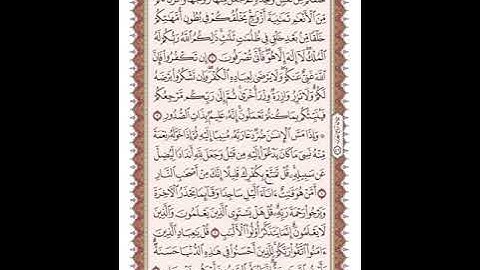 مِّنَ ٱلْأَنْعَٰمِ ثَمَٰنِيَةَ أَزْوَٰجٍ يَخْلُقُكُمْ فِى بُطُونِ أُمَّهَٰتِكُمْ
خَلْقًا مِّنۢ بَعْدِ خَلْقٍ فِى ظُلُمَٰتٍ ثَلَٰثٍ ذَٰلِكُمُ ٱللَّهُ رَبُّكُمْ لَهُ
ٱلْمُلْكُ لَآ إِلَٰهَ إِلَّا هُوَ فَأَنَّىٰ تُصْرَفُونَ ۝ إِن تَكْفُرُوا۟ فَإِنَّ
ٱللَّهَ غَنِىٌّ عَنكُمْ وَلَا يَرْضَىٰ لِعِبَادِهِ ٱلْكُفْرَ وَإِن تَشْكُرُوا۟ يَرْضَهُ
لَكُمْ وَلَا تَزِرُ وَازِرَةٌ وِزْرَ أُخْرَىٰ ثُمَّ إِلَىٰ رَبِّكُم مَّرْجِعُكُمْ
فَيُنَبِّئُكُم بِمَا كُنتُمْ تَعْمَلُونَ إِنَّهُۥ عَلِيمٌۢ بِذَاتِ ٱلصُّدُورِ ۝
وَإِذَا مَسَّ ٱلْإِنسَٰنَ ضُرٌّ دَعَا رَبَّهُۥ مُنِيبًا إِلَيْهِ ثُمَّ إِذَا خَوَّلَهُۥ نِعْمَةً
مِّنْهُ نَسِىَ مَا كَانَ يَدْعُوٓا۟ إِلَيْهِ مِن قَبْلُ وَجَعَلَ لِلَّهِ أَندَادًا لِّيُضِلَّ عَن
سَبِيلِهِۦ قُلْ تَمَتَّعْ بِكُفْرِكَ قَلِيلًا إِنَّكَ مِنْ أَصْحَٰبِ ٱلنَّارِ
۝ أَمَّنْ هُوَ قَٰنِتٌ ءَانَآءَ ٱلَّيْلِ سَاجِدًا وَقَآئِمًا يَحْذَرُ ٱلْءَاخِرَةَ
وَيَرْجُوا۟ رَحْمَةَ رَبِّهِۦ قُلْ هَلْ يَسْتَوِى ٱلَّذِينَ يَعْلَمُونَ وَٱلَّذِينَ
لَا يَعْلَمُونَ إِنَّمَا يَتَذَكَّرُ أُو۟لُوا۟ ٱلْأَلْبَٰبِ ۝ قُلْ يَٰعِبَادِ ٱلَّذِينَ
ءَامَنُوا۟ ٱتَّقُوا۟ رَبَّكُمْ لِلَّذِينَ أَحْسَنُوا۟ فِى هَٰذِهِ ٱلدُّنْيَا حَسَنَةٌ